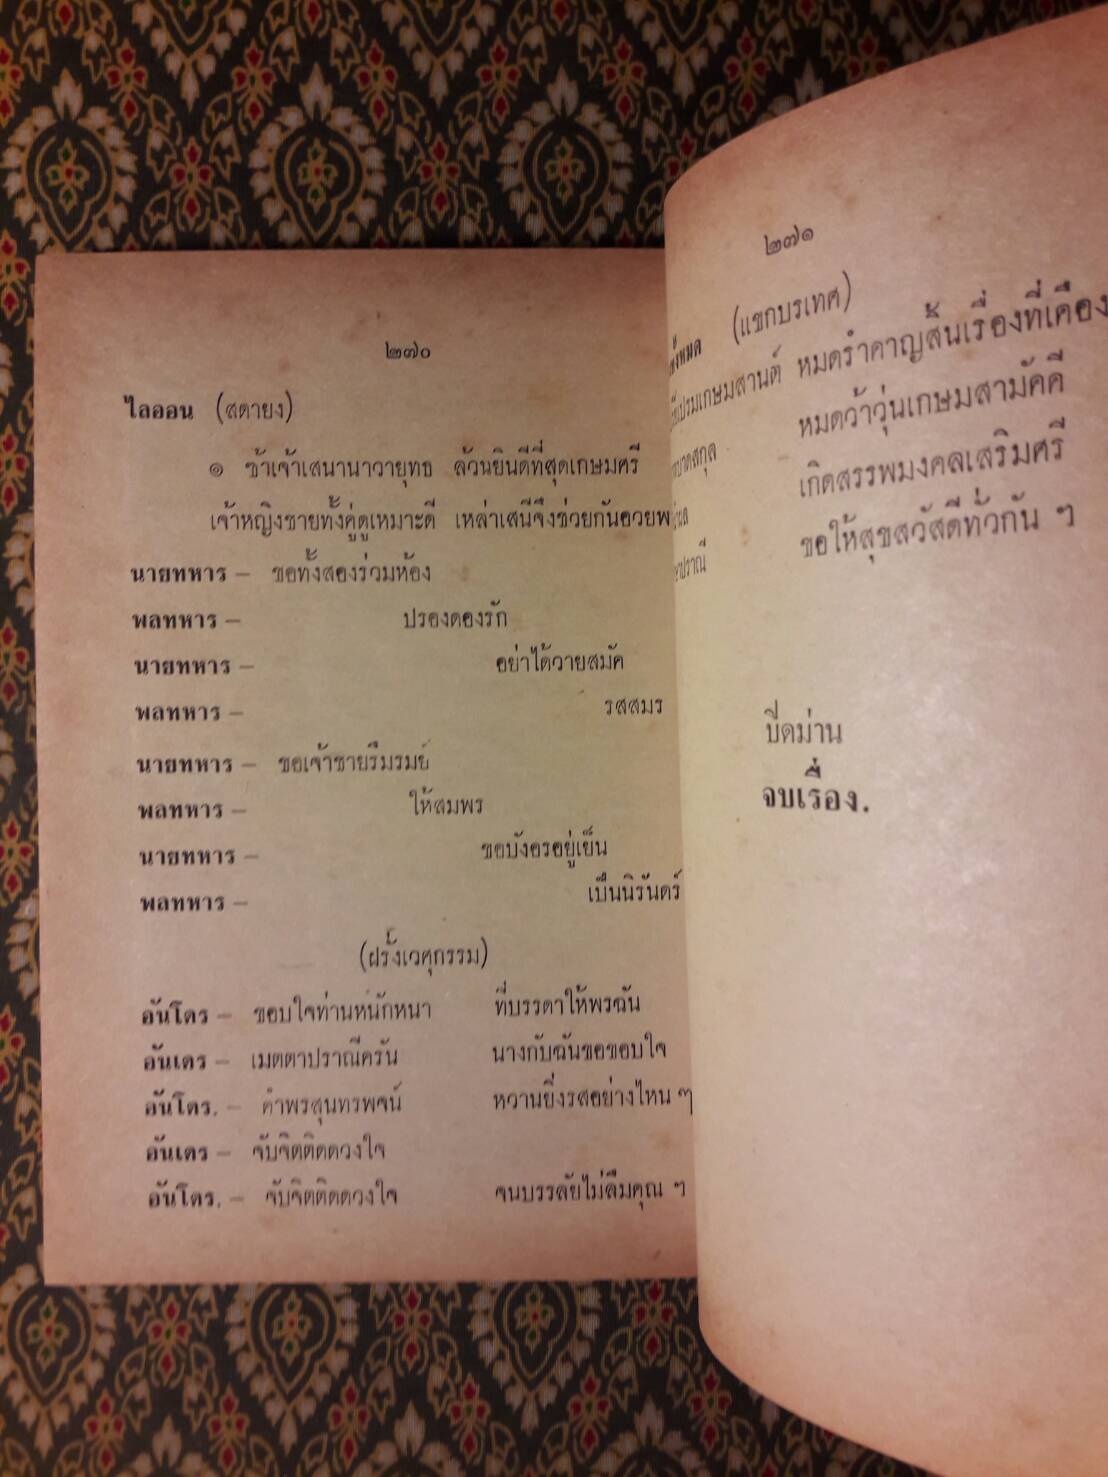 ๒๗๐
ไลออน (สดายง)
๑ ข้าเจ้าเสนานาวายุทธ ล้วนยินดีที่สุดเกษมศรี
เจ้าหญิงชายทั้งคู่ดูเหมาะดี เหล่าเสนีจึงช่วยกันอวยพ
นายทหาร – ขอทั้งสองร่วมห้อง
พลทหาร – ปรองดองรัก
นายทหาร – อย่าได้วายสมัค
พลทหาร – รสสมร
นายทหาร – ขอเจ้าชายรึมรมย์
พลทหาร – ให้สมพร
นายทหาร – ขอบังอรอยู่เย็น
พลทหาร – เป็นนิรันดร์
(ฝรั้งเวศุกรรม)
อันโดร – ขอบใจท่านหนักหนา ที่บรรดาให้พรฉัน
อันเดร – เมตตาปราณีครัน นางกับฉันขอขอบใจ
อันโดร. – คำพรสุนทรพจน์ หวานยิ่งรสอย่างไหน ๆ
อันเดร – จับจิตติดดวงใจ
อันโดร. – จับจิตติดดวงใจ จนบรรลัยไม่ลืมคุณ ๆ
๒๗๑
ทั้งหมด (แขกบรเทศ)
ปรมเกษมสานต์ หมดรำคาญสิ้นเรื่องที่เคือง
สกุล หมดว้าวุ่นเกษมสามัคคี
เกิดสรรพมงคลเสริมศรี
ปราณี ขอให้สุขสวัสดีทั่วกัน ๆ
ปิดม่าน
จบเรื่อง.